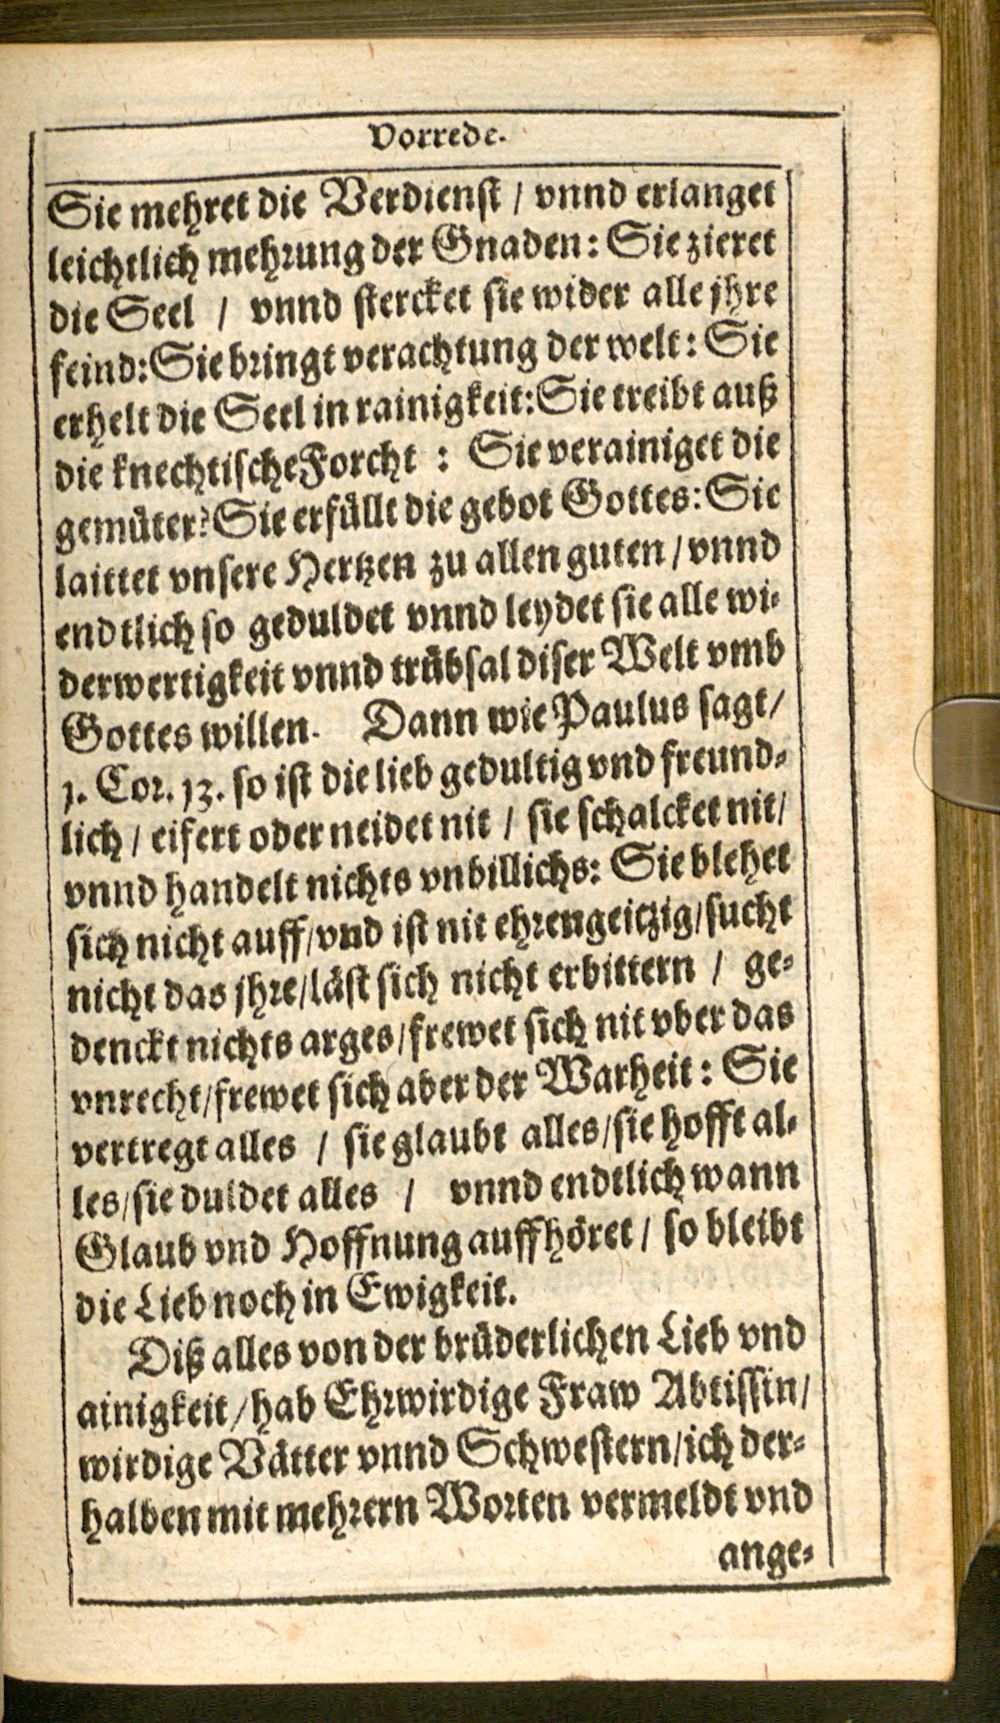 Vorrede.
Sie mehret die Verdienst / vnnd erlanget
leichtlich mehrung der Gnaden: Sie zieret
die Seel / vnnd stercket sie wider alle jhre
feind: Sie bringt verachtung der welt: Sie
erhelt die Seel in rainigkeit: Sie treibt auß
die knechtische Forcht : Sie verainiget die
gemüter: Sie erfüllt die gebot Gottes: Sie
laittet vnsere Hertzen zu allen guten / vnnd
endtlich so geduldet vnnd leydet sie alle wi-
derwertigkeit vnnd trübsal diser Welt vmb
Gottes willen. Dann wie Paulus sagt /
1. Cor. 13. so ist die lieb gedultig vnd freund-
lich / eifert oder neidet nit / sie schalcket nit /
vnnd handelt nichts vnbillichs: Sie blehet
sich nicht auff / vnd ist nit ehrengeitzig / sucht
nicht das jhre / läst sich nicht erbittern / ge-
denckt nichts arges / frewet sich nit vber das
vnrecht / frewet sich aber der Warheit: Sie
vertregt alles / sie glaubt alles / sie hofft al-
les / sie duldet alles / vnnd endtlich wann
Glaub vnd Hoffnung auffhöret / so bleibt
die Lieb noch in Ewigkeit.
Diß alles von der brüderlichen Lieb vnd
ainigkeit / hab Ehrwirdige Fraw Abtissin /
wirdige Vätter vnnd Schwestern / ich der-
halben mit mehrern Worten vermeldt vnd
ange-